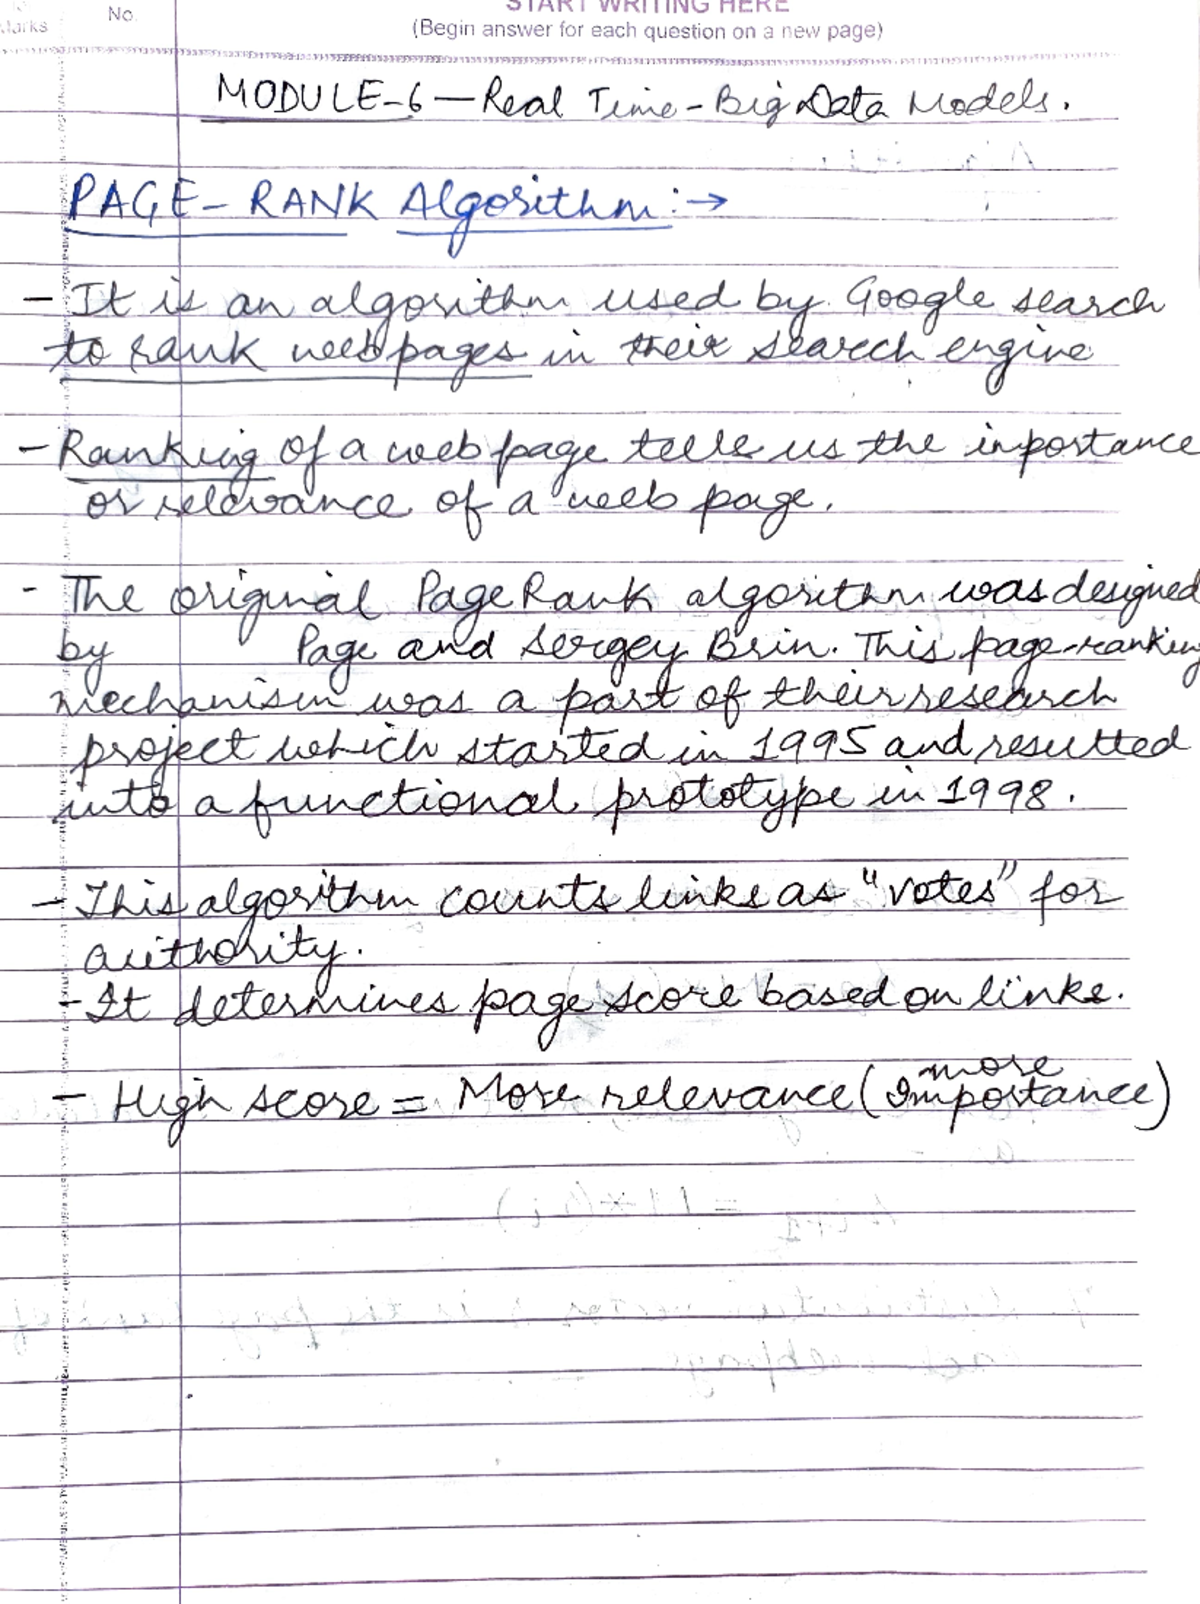 Marks
No.
START WRITING HERE
(Begin answer for each question on a new page)
MODULE-6 — Real Time - Big Data Models.
PAGE - RANK Algorithm :→
- It is an algorithm used by Google search
to rank webpages in their search engine
- Ranking of a web page tells us the importance
or relevance of a web page.
- The original PageRank algorithm was designed
by Page and Sergey Brin. This page-ranking
mechanism was a part of their research
project which started in 1995 and resulted
into a functional prototype in 1998.
- This algorithm counts links as "votes" for
authority.
- It determines page score based on links.
- High score = More relevance (more Importance)